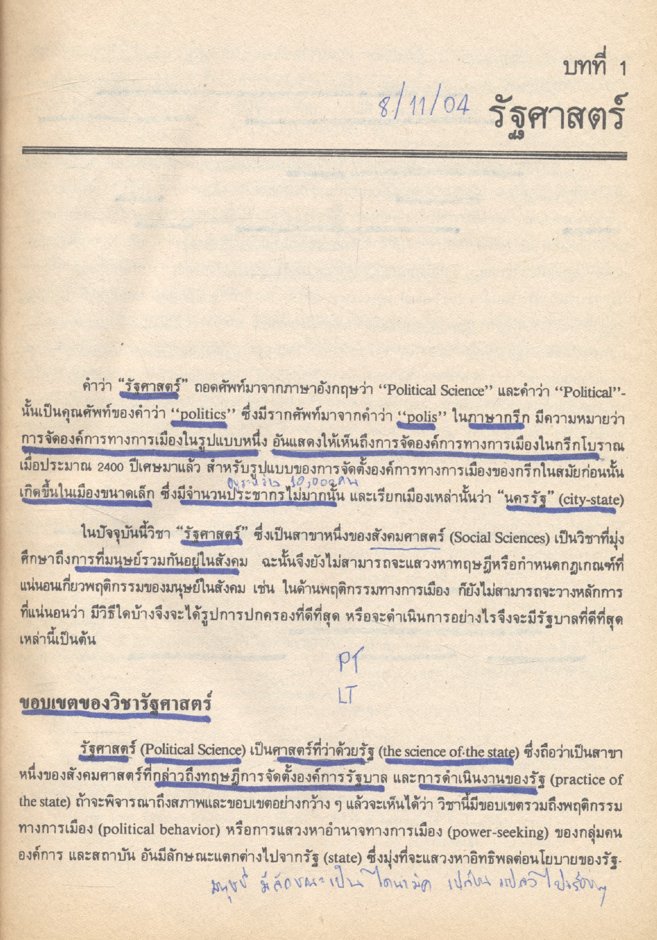 บทที่ 1
8/11/04
รัฐศาสตร์
คำว่า “รัฐศาสตร์” ถอดศัพท์มาจากภาษาอังกฤษว่า “Political Science” และคำว่า “Political”-
นั้นเป็นคุณศัพท์ของคำว่า “politics” ซึ่งมีรากศัพท์มาจากคำว่า “polis” ในภาษากรีก มีความหมายว่า
การจัดองค์การทางการเมืองในรูปแบบหนึ่ง อันแสดงให้เห็นถึงการจัดองค์การทางการเมืองในกรีกโบราณ
เมื่อประมาณ 2400 ปีเศษมาแล้ว สำหรับรูปแบบของการจัดตั้งองค์การทางการเมืองของกรีกในสมัยก่อนนั้น
10,000 คน
เกิดขึ้นในเมืองขนาดเล็ก ซึ่งมีจำนวนประชากรไม่มากนั้น และเรียกเมืองเหล่านั้นว่า “นครรัฐ” (city-state)
ในปัจจุบันนี้วิชา “รัฐศาสตร์” ซึ่งเป็นสาขาหนึ่งของสังคมศาสตร์ (Social Sciences) เป็นวิชาที่มุ่ง
ศึกษาถึงการที่มนุษย์รวมกันอยู่ในสังคม ฉะนั้นจึงยังไม่สามารถจะแสวงหาทฤษฎีหรือกำหนดกฎเกณฑ์ที่
แน่นอนเกี่ยวพฤติกรรมของมนุษย์ในสังคม เช่น ในด้านพฤติกรรมทางการเมือง ก็ยังไม่สามารถจะวางหลักการ
ที่แน่นอนว่า มีวิธีใดบ้างจึงจะได้รูปการปกครองที่ดีที่สุด หรือจะดำเนินการอย่างไรจึงจะมีรัฐบาลที่ดีที่สุด
เหล่านี้เป็นต้น
PT
LT
ขอบเขตของวิชารัฐศาสตร์
รัฐศาสตร์ (Political Science) เป็นศาสตร์ที่ว่าด้วยรัฐ (the science of the state) ซึ่งถือว่าเป็นสาขา
หนึ่งของสังคมศาสตร์ที่กล่าวถึงทฤษฎีการจัดตั้งองค์การรัฐบาล และการดำเนินงานของรัฐ (practice of
the state) ถ้าจะพิจารณาถึงสภาพและขอบเขตอย่างกว้าง ๆ แล้วจะเห็นได้ว่า วิชานี้มีขอบเขตรวมถึงพฤติกรรม
ทางการเมือง (political behavior) หรือการแสวงหาอำนาจทางการเมือง (power-seeking) ของกลุ่มคน
องค์การ และสถาบัน อันมีลักษณะแตกต่างไปจากรัฐ (state) ซึ่งมุ่งที่จะแสวงหาอิทธิพลต่อนโยบายของรัฐ-
มีลักษณะเป็น ไดนามิค